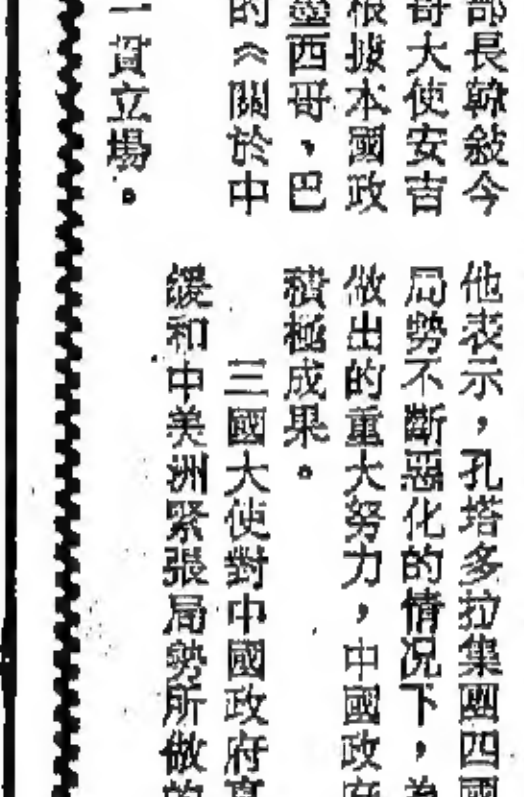 部長韓敍今
哥大使安吉
根據本國政
墨西哥、巴
的《關於中
一貫立場。
他表示，孔塔多拉集團四國
局勢不斷惡化的情況下，為
做出的重大努力，中國政府
積極成果。
三國大使對中國政府真
緩和中美洲緊張局勢所做的